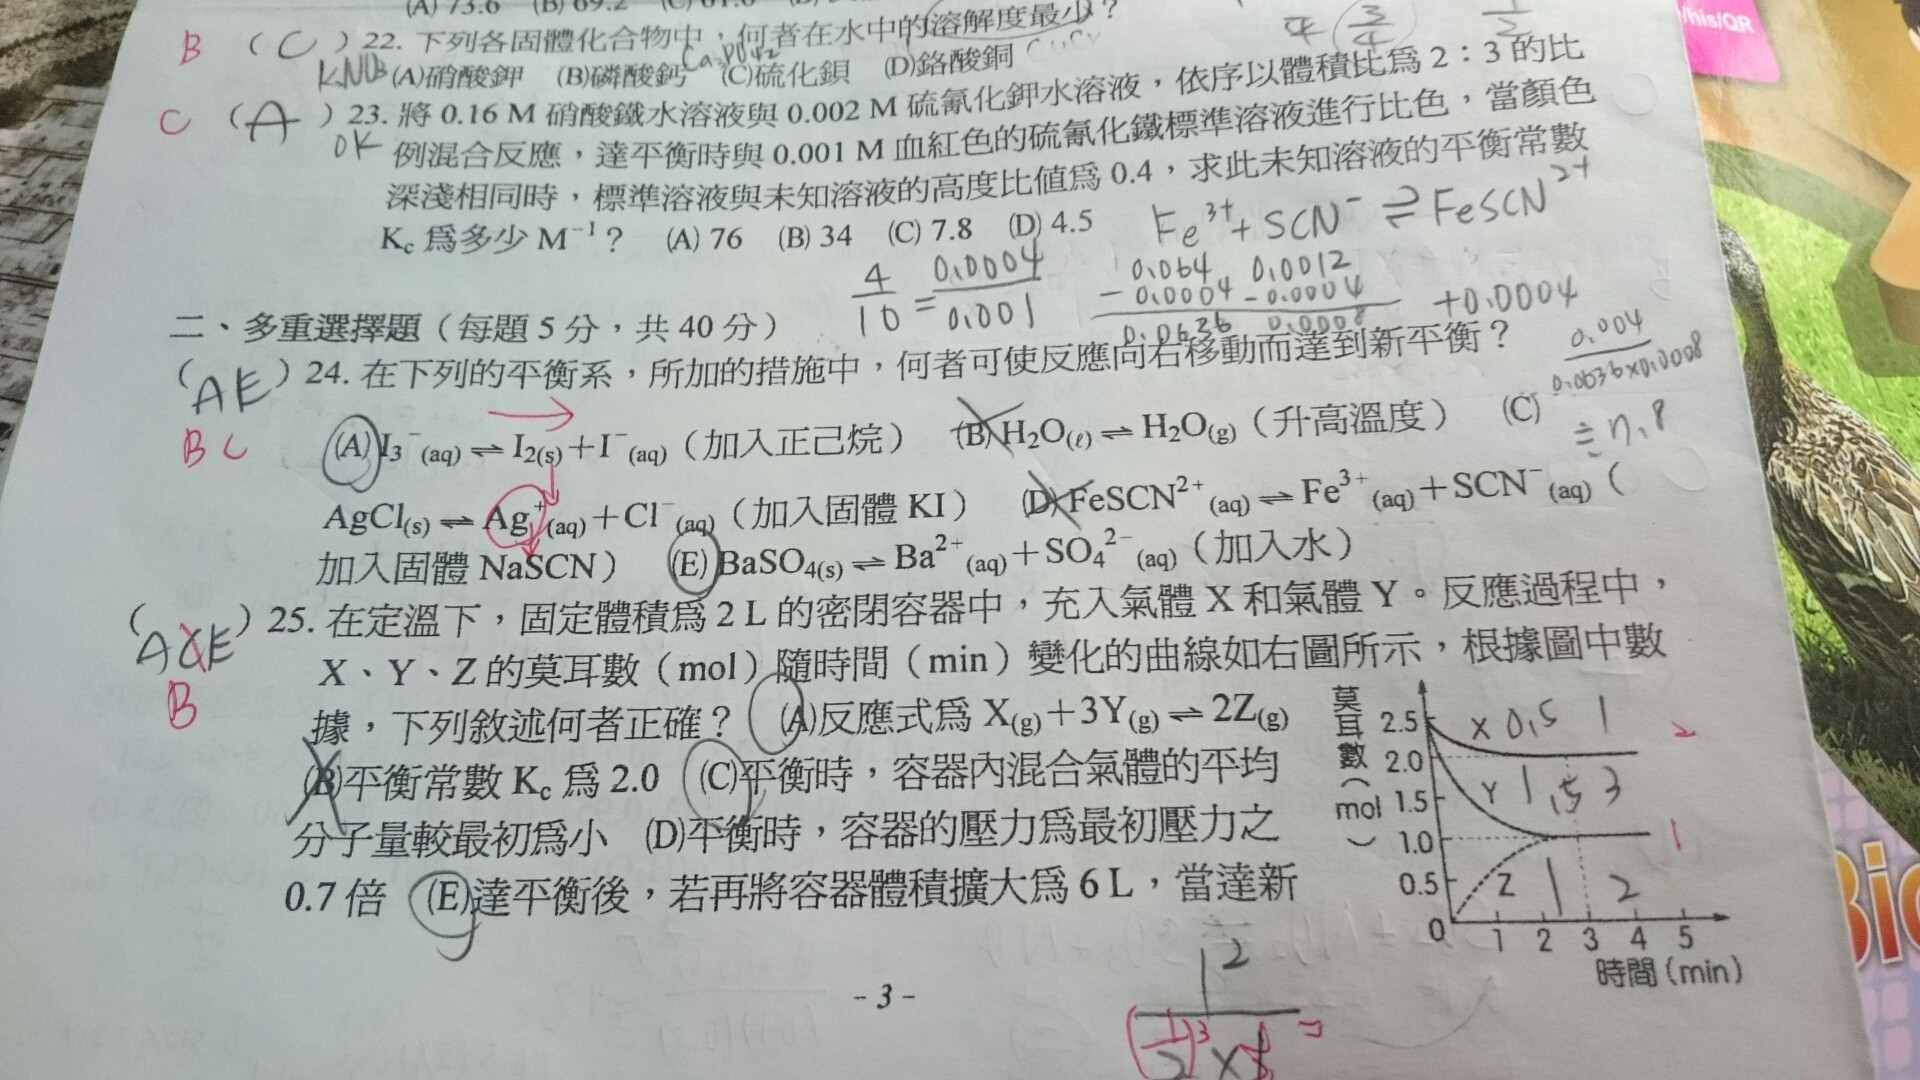 (A) 73.6 (B) 69.2
B (C) 22. 下列各固體化合物中，何者在水中的溶解度最少？
KNO3 (A)硝酸鉀 (B)磷酸鈣 (C)硫化鋇 (D)鉻酸銅
C (A) 23. 將 0.16 M 硝酸鐵水溶液與 0.002 M 硫氰化鉀水溶液，依序以體積比為 2：3 的比
OK 例混合反應，達平衡時與 0.001 M 血紅色的硫氰化鐵標準溶液進行比色，當顏色
深淺相同時，標準溶液與未知溶液的高度比值為 0.4，求此未知溶液的平衡常數
Kc 為多少 M⁻¹？ (A) 76 (B) 34 (C) 7.8 (D) 4.5
Fe³⁺ + SCN⁻ ⇌ FeSCN²⁺
4/10 = 0.0004/0.001
0.064 0.0012
－0.0004 －0.0004 +0.0004
0.0636 0.0008
0.004
0.0636×0.0008
≒ 7.8
二、多重選擇題（每題 5 分，共 40 分）
(AE) 24. 在下列的平衡系，所加的措施中，何者可使反應向右移動而達到新平衡？
BC
(A) I₃⁻(aq) ⇌ I₂(s)＋I⁻(aq)（加入正己烷） (B) H₂O(ℓ) ⇌ H₂O(g)（升高溫度） (C)
AgCl(s) ⇌ Ag⁺(aq)＋Cl⁻(aq)（加入固體 KI） (D) FeSCN²⁺(aq) ⇌ Fe³⁺(aq)＋SCN⁻(aq)（
加入固體 NaSCN） (E) BaSO₄(s) ⇌ Ba²⁺(aq)＋SO₄²⁻(aq)（加入水）
(ACE) 25. 在定溫下，固定體積為 2 L 的密閉容器中，充入氣體 X 和氣體 Y。反應過程中，
B
X、Y、Z 的莫耳數（mol）隨時間（min）變化的曲線如右圖所示，根據圖中數
據，下列敘述何者正確？ (A)反應式為 X(g)＋3Y(g) ⇌ 2Z(g)
(B)平衡常數 Kc 為 2.0 (C)平衡時，容器內混合氣體的平均
分子量較最初為小 (D)平衡時，容器的壓力為最初壓力之
0.7 倍 (E)達平衡後，若再將容器體積擴大為 6 L，當達新
莫耳數（mol）
2.5 X 0.5 1
2.0
1.5 Y 1.5 3
1.0 1
0.5 Z 1 2
0 1 2 3 4 5
時間 (min)
- 3 -
his/QR
Bio